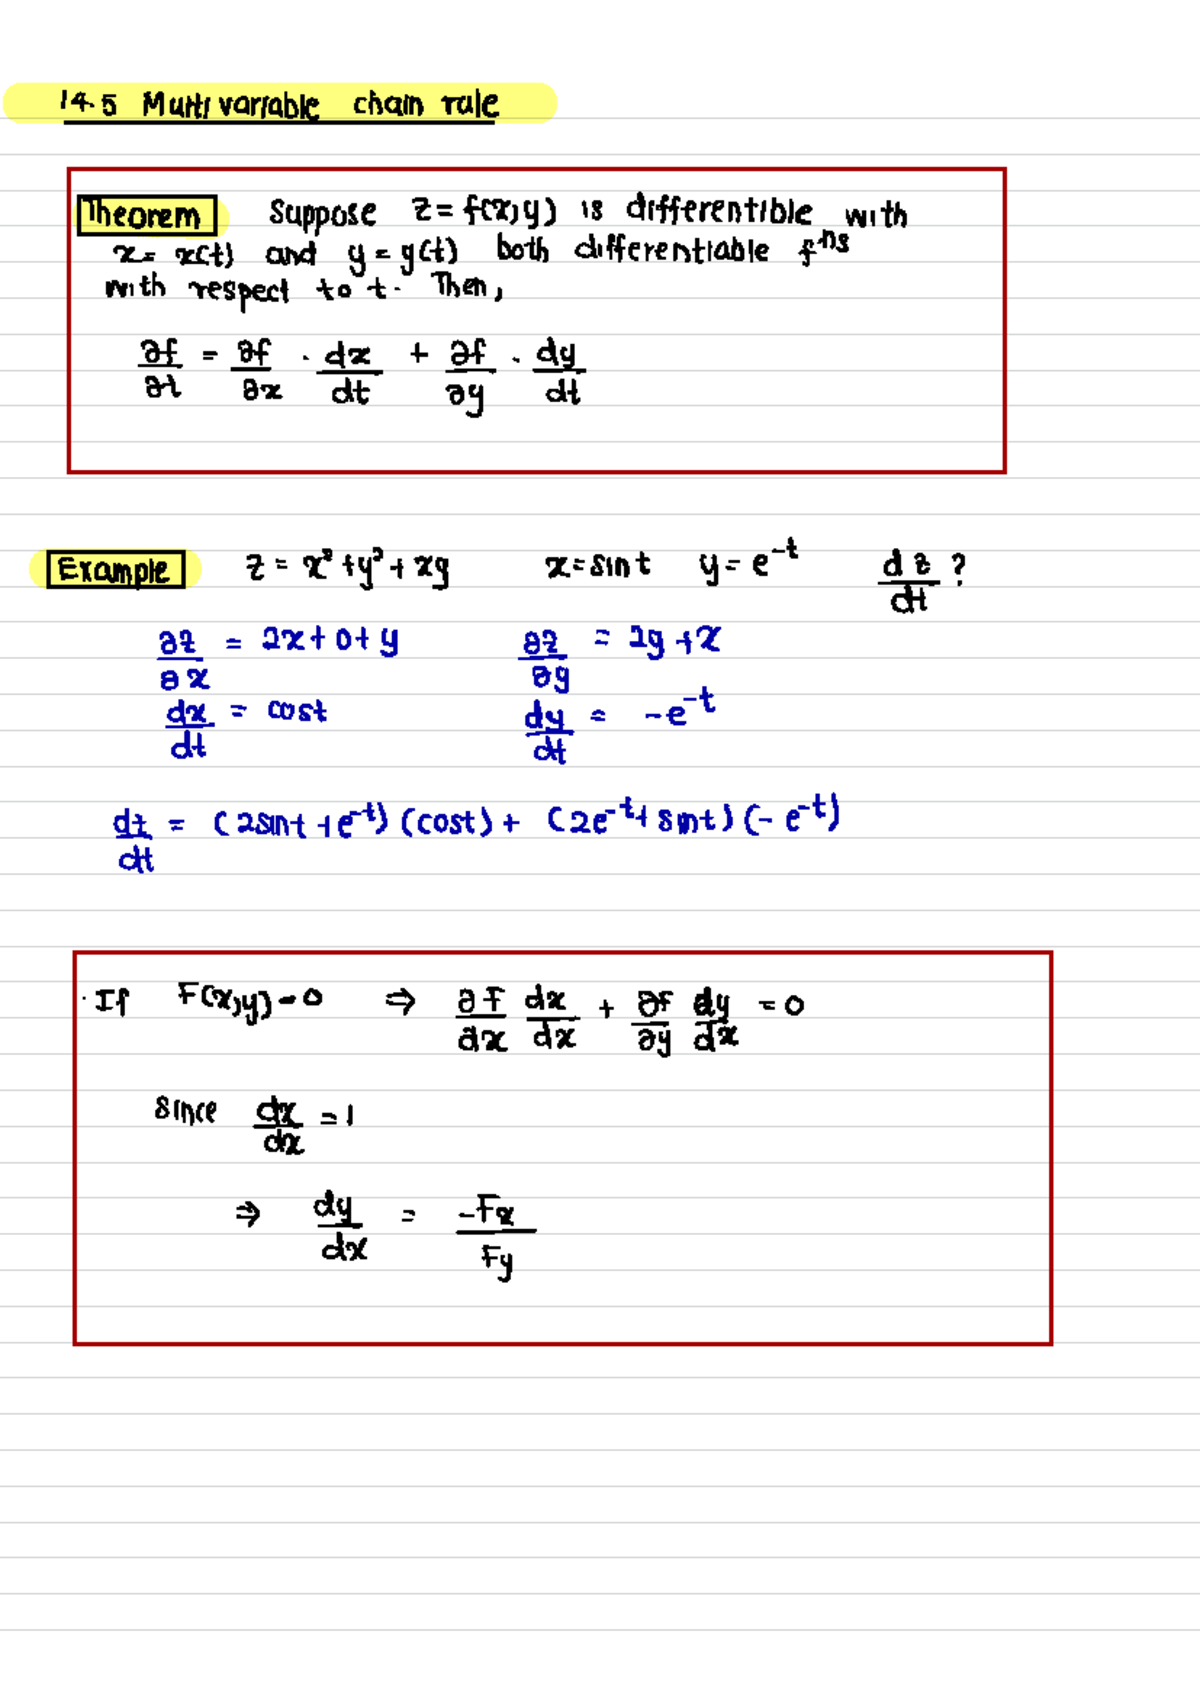 14.5 Multivariable chain rule
Theorem Suppose z = f(x,y) is differentible with
x = x(t) and y = g(t) both differentiable fⁿˢ
with respect to t. Then,
∂f/∂t = ∂f/∂x · dx/dt + ∂f/∂y · dy/dt
Example z = x² + y² + xy x = sin t y = e^-t dz/dt ?
∂z/∂x = 2x + 0 + y ∂z/∂y = 2y + x
dx/dt = cost dy/dt = -e^-t
dz/dt = (2sint + e^-t) (cost) + (2e^-t + sint) (-e^-t)
· If F(x,y) = 0 ⇒ ∂F/∂x dx/dx + ∂F/∂y dy/dx = 0
since dx/dx = 1
⇒ dy/dx = -Fx/Fy